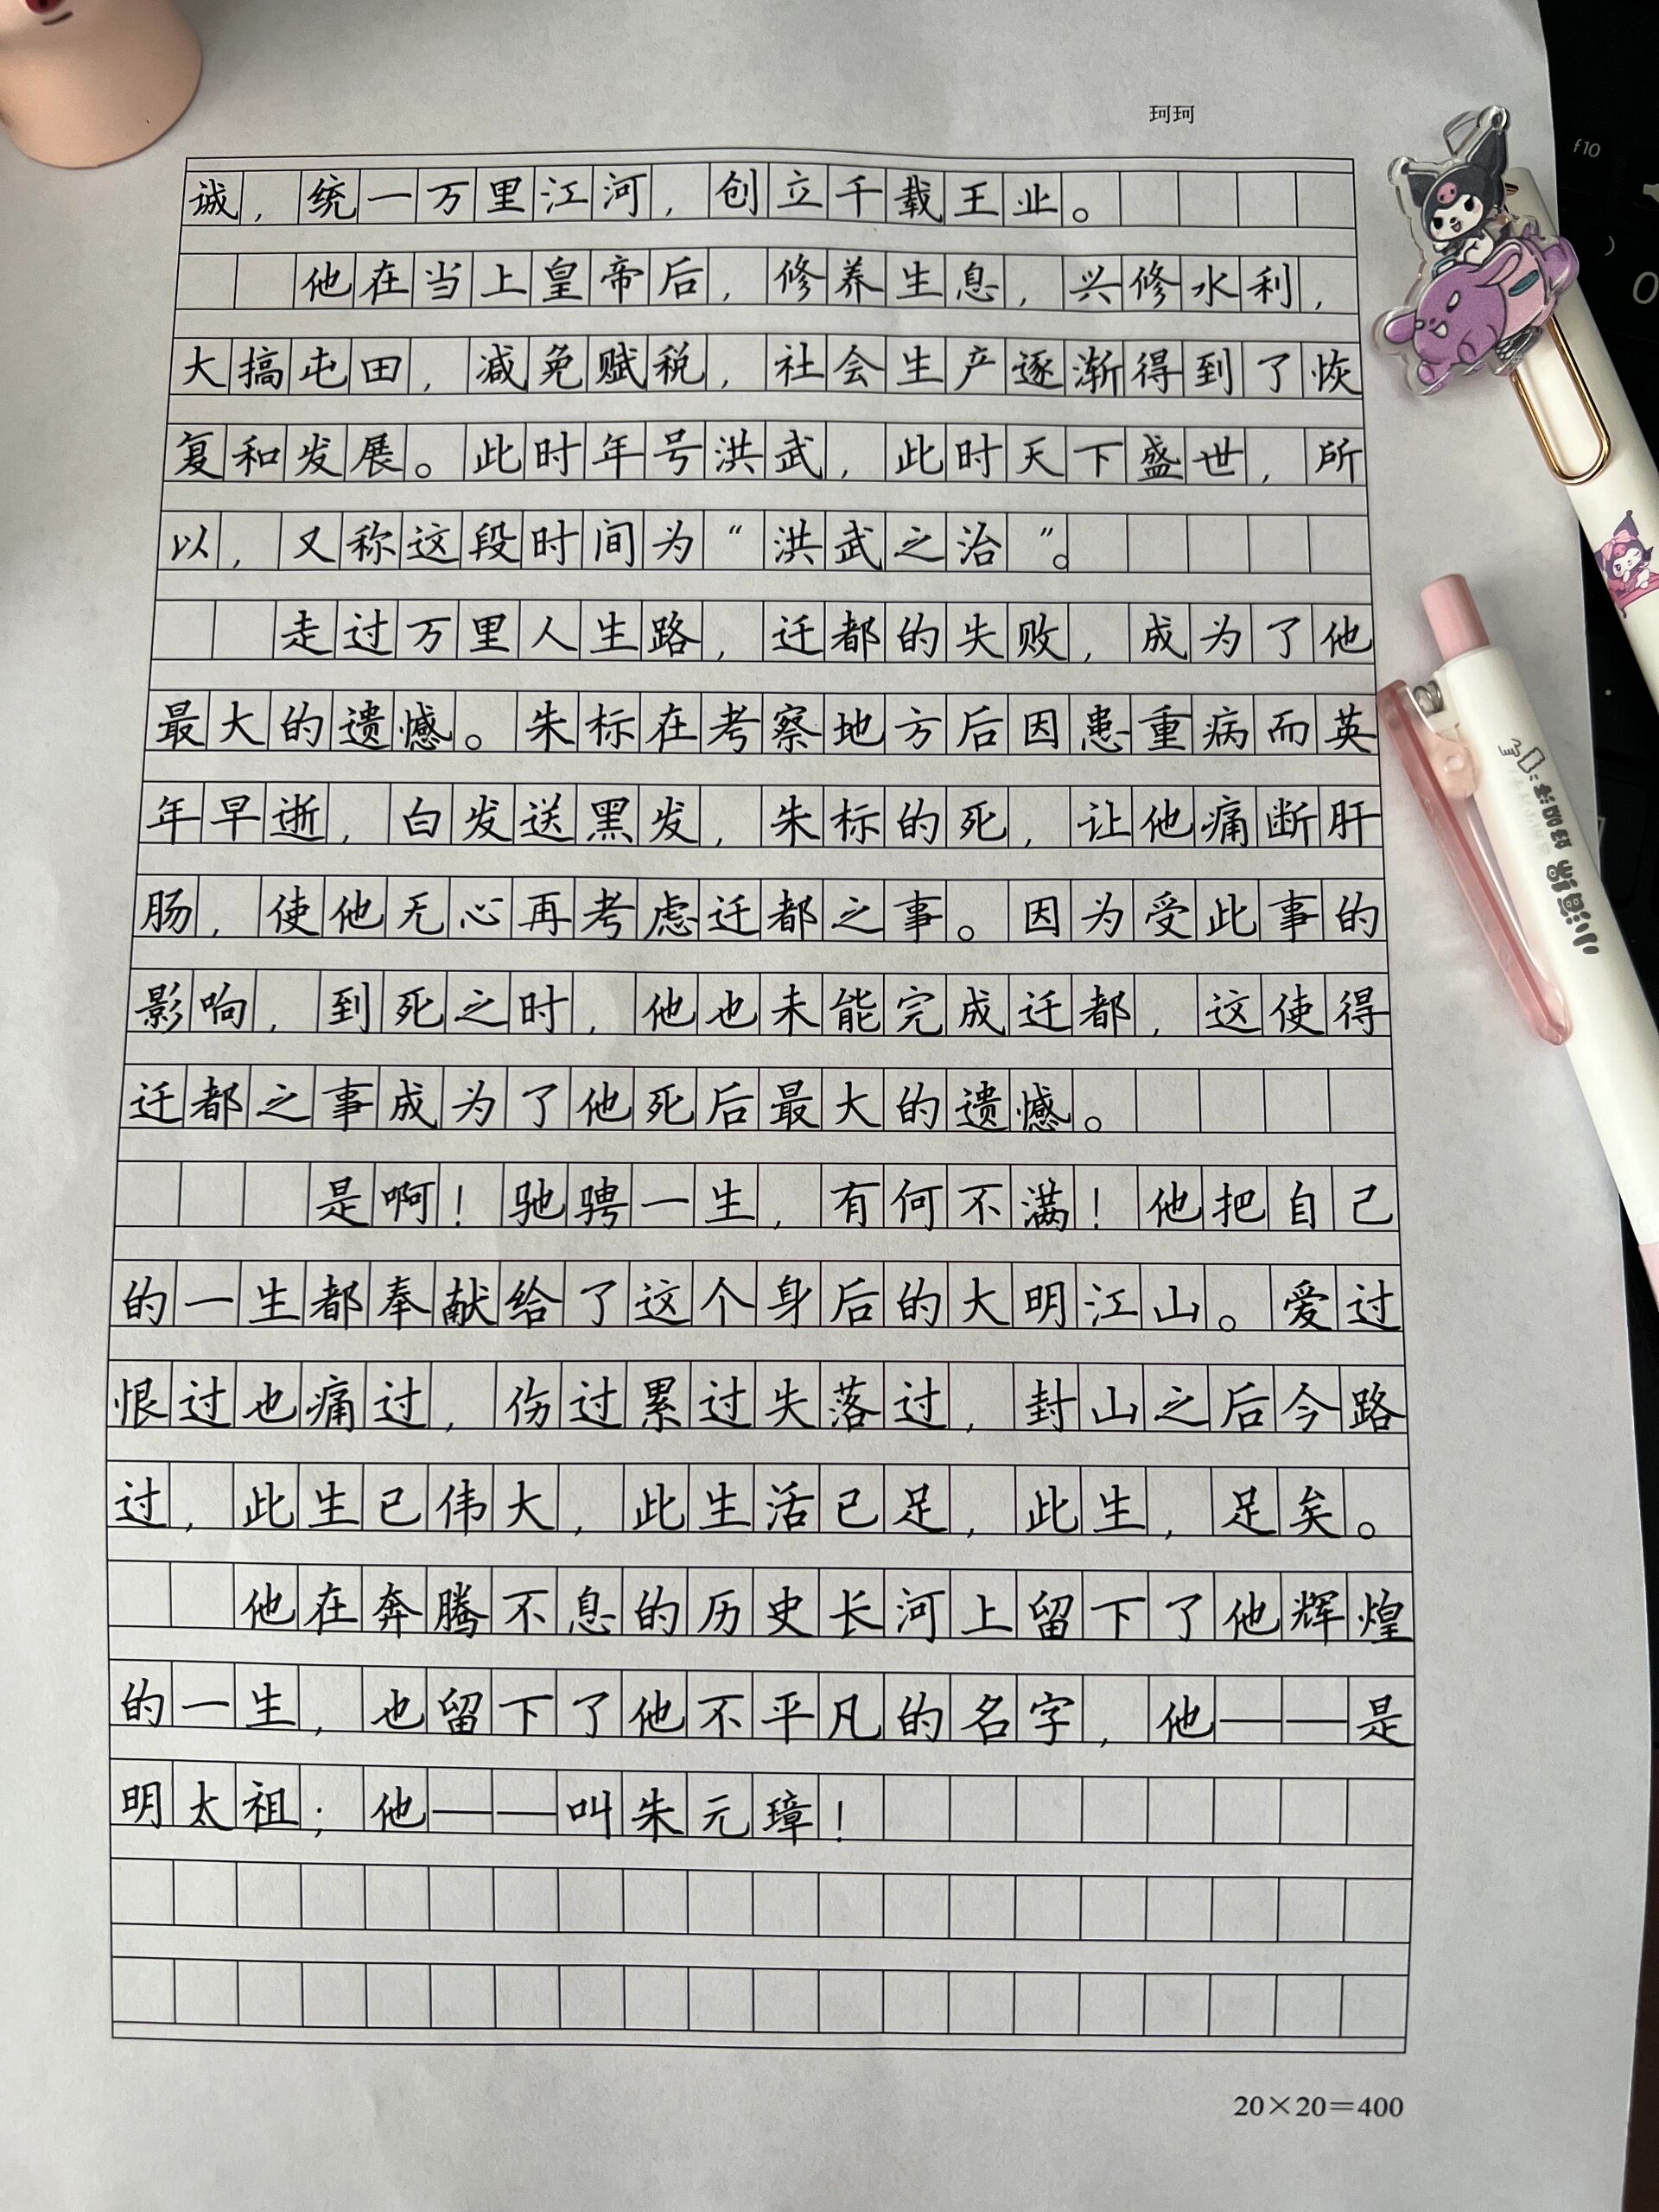 珂珂
诚，统一万里江河，创立千载王业。
他在当上皇帝后，修养生息，兴修水利，
大搞屯田，减免赋税，社会生产逐渐得到了恢
复和发展。此时年号洪武，此时天下盛世，所
以，又称这段时间为“洪武之治”。
走过万里人生路，迁都的失败，成为了他
最大的遗憾。朱标在考察地方后因患重病而英
年早逝，白发送黑发，朱标的死，让他痛断肝
肠，使他无心再考虑迁都之事。因为受此事的
影响，到死之时，他也未能完成迁都，这使得
迁都之事成为了他死后最大的遗憾。
是啊！驰骋一生，有何不满！他把自己
的一生都奉献给了这个身后的大明江山。爱过
恨过也痛过，伤过累过失落过，封山之后今路
过，此生已伟大，此生活已足，此生，足矣。
他在奔腾不息的历史长河上留下了他辉煌
的一生，也留下了他不平凡的名字，他——是
明太祖；他——叫朱元璋！
20×20=400
f10